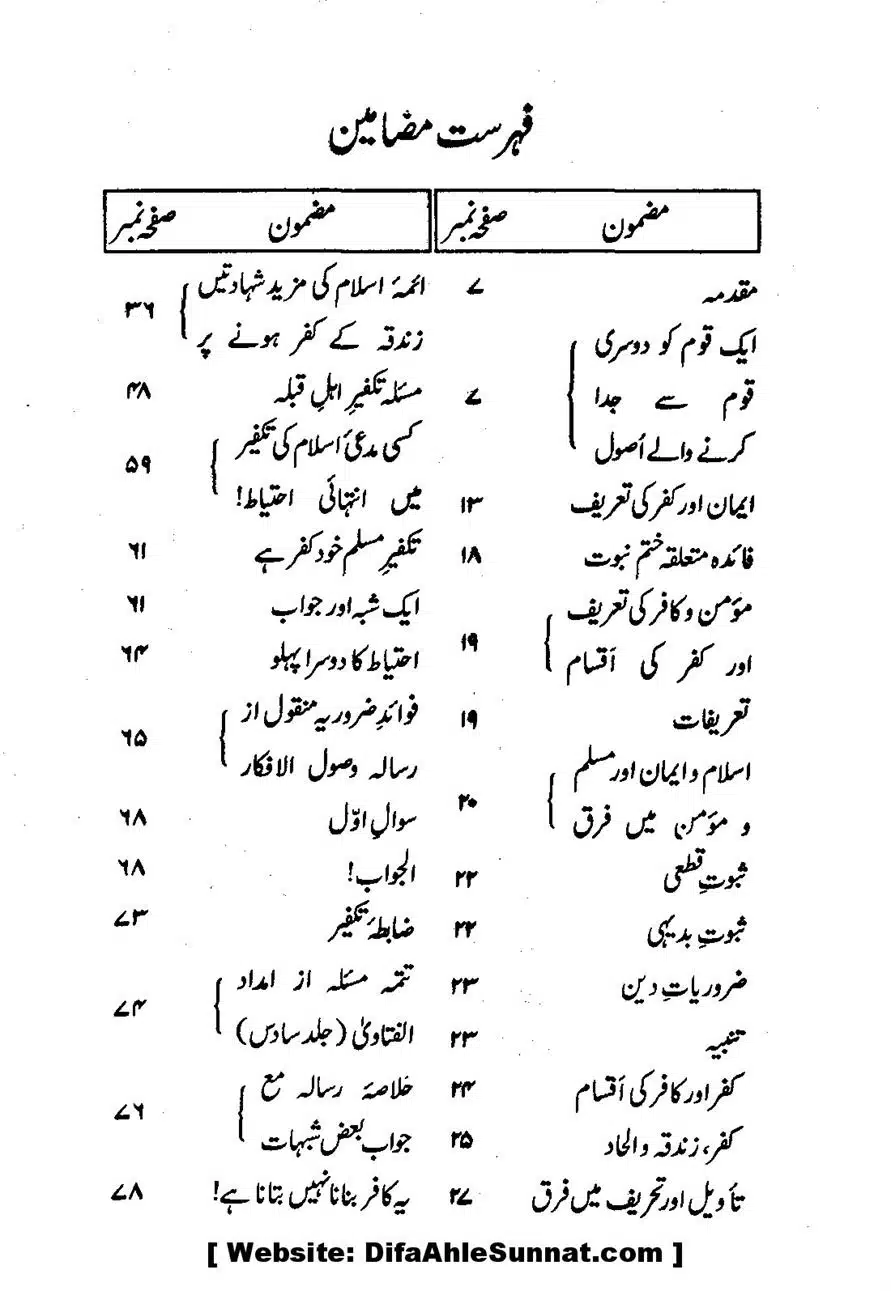 فہرست مضامین
مضمون صفحہ نمبر
مقدمہ ۷
ایک قوم کو دوسری
قوم سے جدا ۷
کرنے والے اُصول
ایمان اور کفر کی تعریف ۱۳
فائدہ متعلقہ ختم نبوت ۱۸
مؤمن و کافر کی تعریف
اور کفر کی اَقسام ۱۹
تعریفات ۱۹
اسلام و ایمان اور مسلم
و مؤمن میں فرق ۲۰
ثبوتِ قطعی ۲۲
ثبوتِ بدیہی ۲۲
ضروریاتِ دین ۲۳
تنبیہ ۲۳
کفر اور کافر کی اَقسام ۲۴
کفر، زندقہ و الحاد ۲۵
تأویل اور تحریف میں فرق ۲۷
مضمون صفحہ نمبر
ائمۂ اسلام کی مزید شہادتیں
زندقہ کے کفر ہونے پر ۳۶
مسئلہ تکفیرِ اہلِ قبلہ ۴۸
کسی مدعیٔ اسلام کی تکفیر
میں انتہائی احتیاط! ۵۹
تکفیرِ مسلم خود کفر ہے ۶۱
ایک شبہ اور جواب ۶۱
احتیاط کا دوسرا پہلو ۶۴
فوائدِ ضروریہ منقول از
رسالہ وصول الافکار ۶۵
سوالِ اوّل ۶۸
الجواب! ۶۸
ضابطۂ تکفیر ۷۳
تتمہ مسئلہ از امداد
الفتاویٰ (جلد سادس) ۷۴
خلاصۂ رسالہ مع
جواب بعض شبہات ۷۶
یہ کافر بنانا نہیں بتانا ہے! ۷۸
[ Website: DifaAhleSunnat.com ]